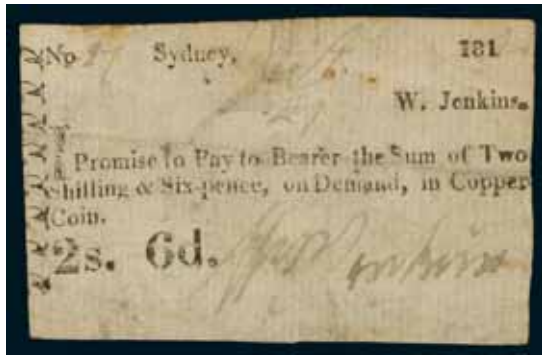 No Sydney, 181
W. Jenkins.
Promise to Pay to Bearer the Sum of Two
Shilling & Six-pence, on Demand, in Copper
Coin.
2s. 6d.